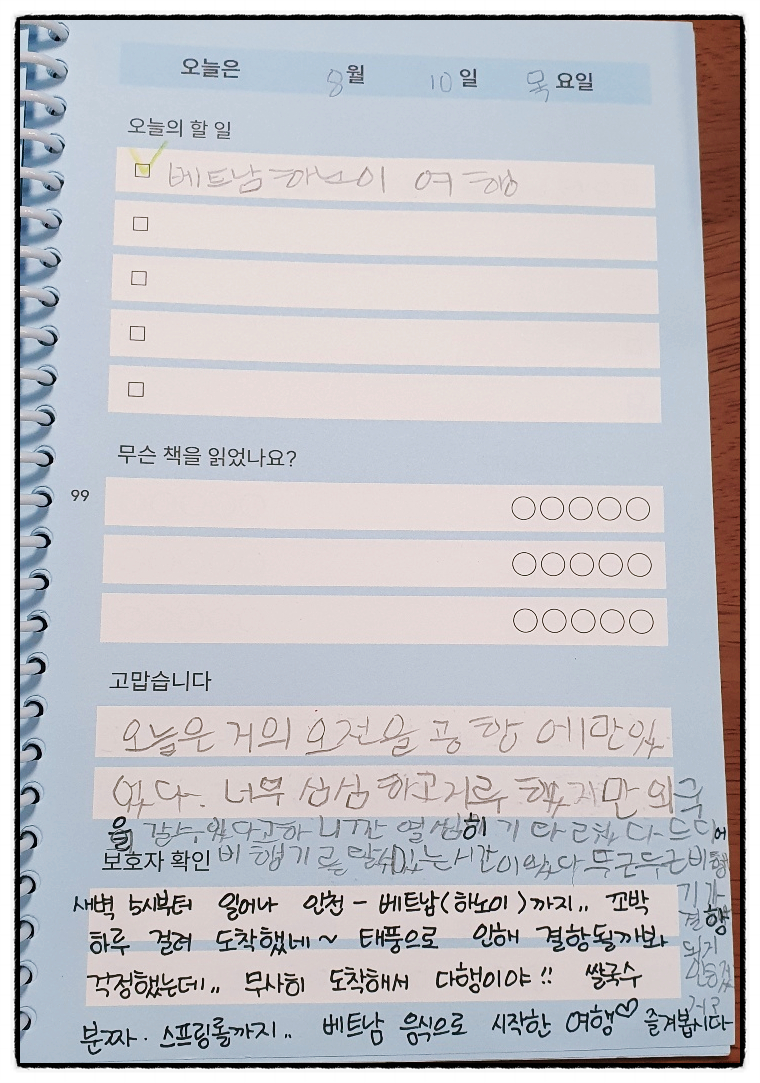 오늘은 8월 10일 목요일
오늘의 할 일
베트남 하노이 여행
무슨 책을 읽었나요?
99
고맙습니다
오늘은 거의 오전을 공항에만 있
었다. 너무 심심하고 지루했지만 외국
을 갈 수 있다고 하니깐 열심히 기다렸다 드디어
보호자 확인
비행기를 탈 수 있는 시간이 었다 두근두근 비행
기가
결항
되지
새벽 5시부터 일어나 인천 - 베트남(하노이)까지.. 꼬박
하루 걸려 도착했네~ 태풍으로 인해 결항될까봐
걱정했는데.. 무사히 도착해서 다행이야!! 쌀국수
분짜. 스프링롤까지.. 베트남 음식으로 시작한 여행♡ 즐겨봅시다